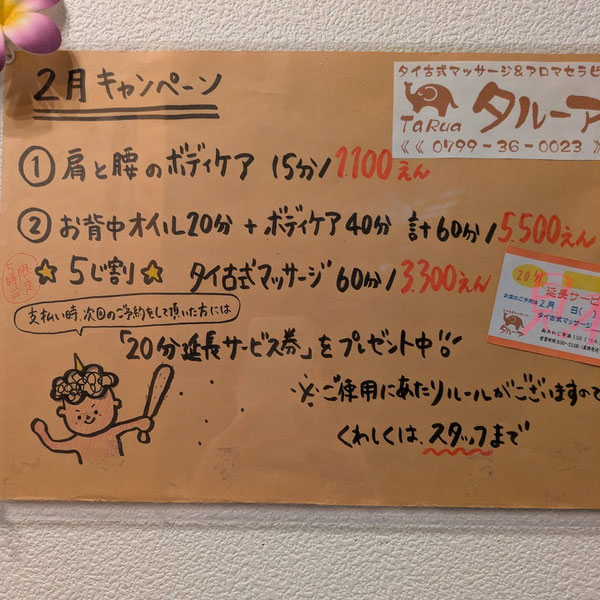 2月キャンペーン
タイ古式マッサージ&アロマセラピ
TaRua タルーア
《《 0799-36-0023 》
① 肩と腰のボディケア 15分/1,100えん
② お背中オイル20分 + ボディケア40分 計60分/5,500えん
☆5じ割☆ タイ古式マッサージ 60分/3,300えん
支払い時、次回のご予約をして頂いた方には
「20分延長サービス券」をプレゼント中!!
※ご使用にあたりルールがございますので
くわしくは、スタッフまで
20分
延長サービ
2月 日( )
タイ古式マッサージ
タルーア